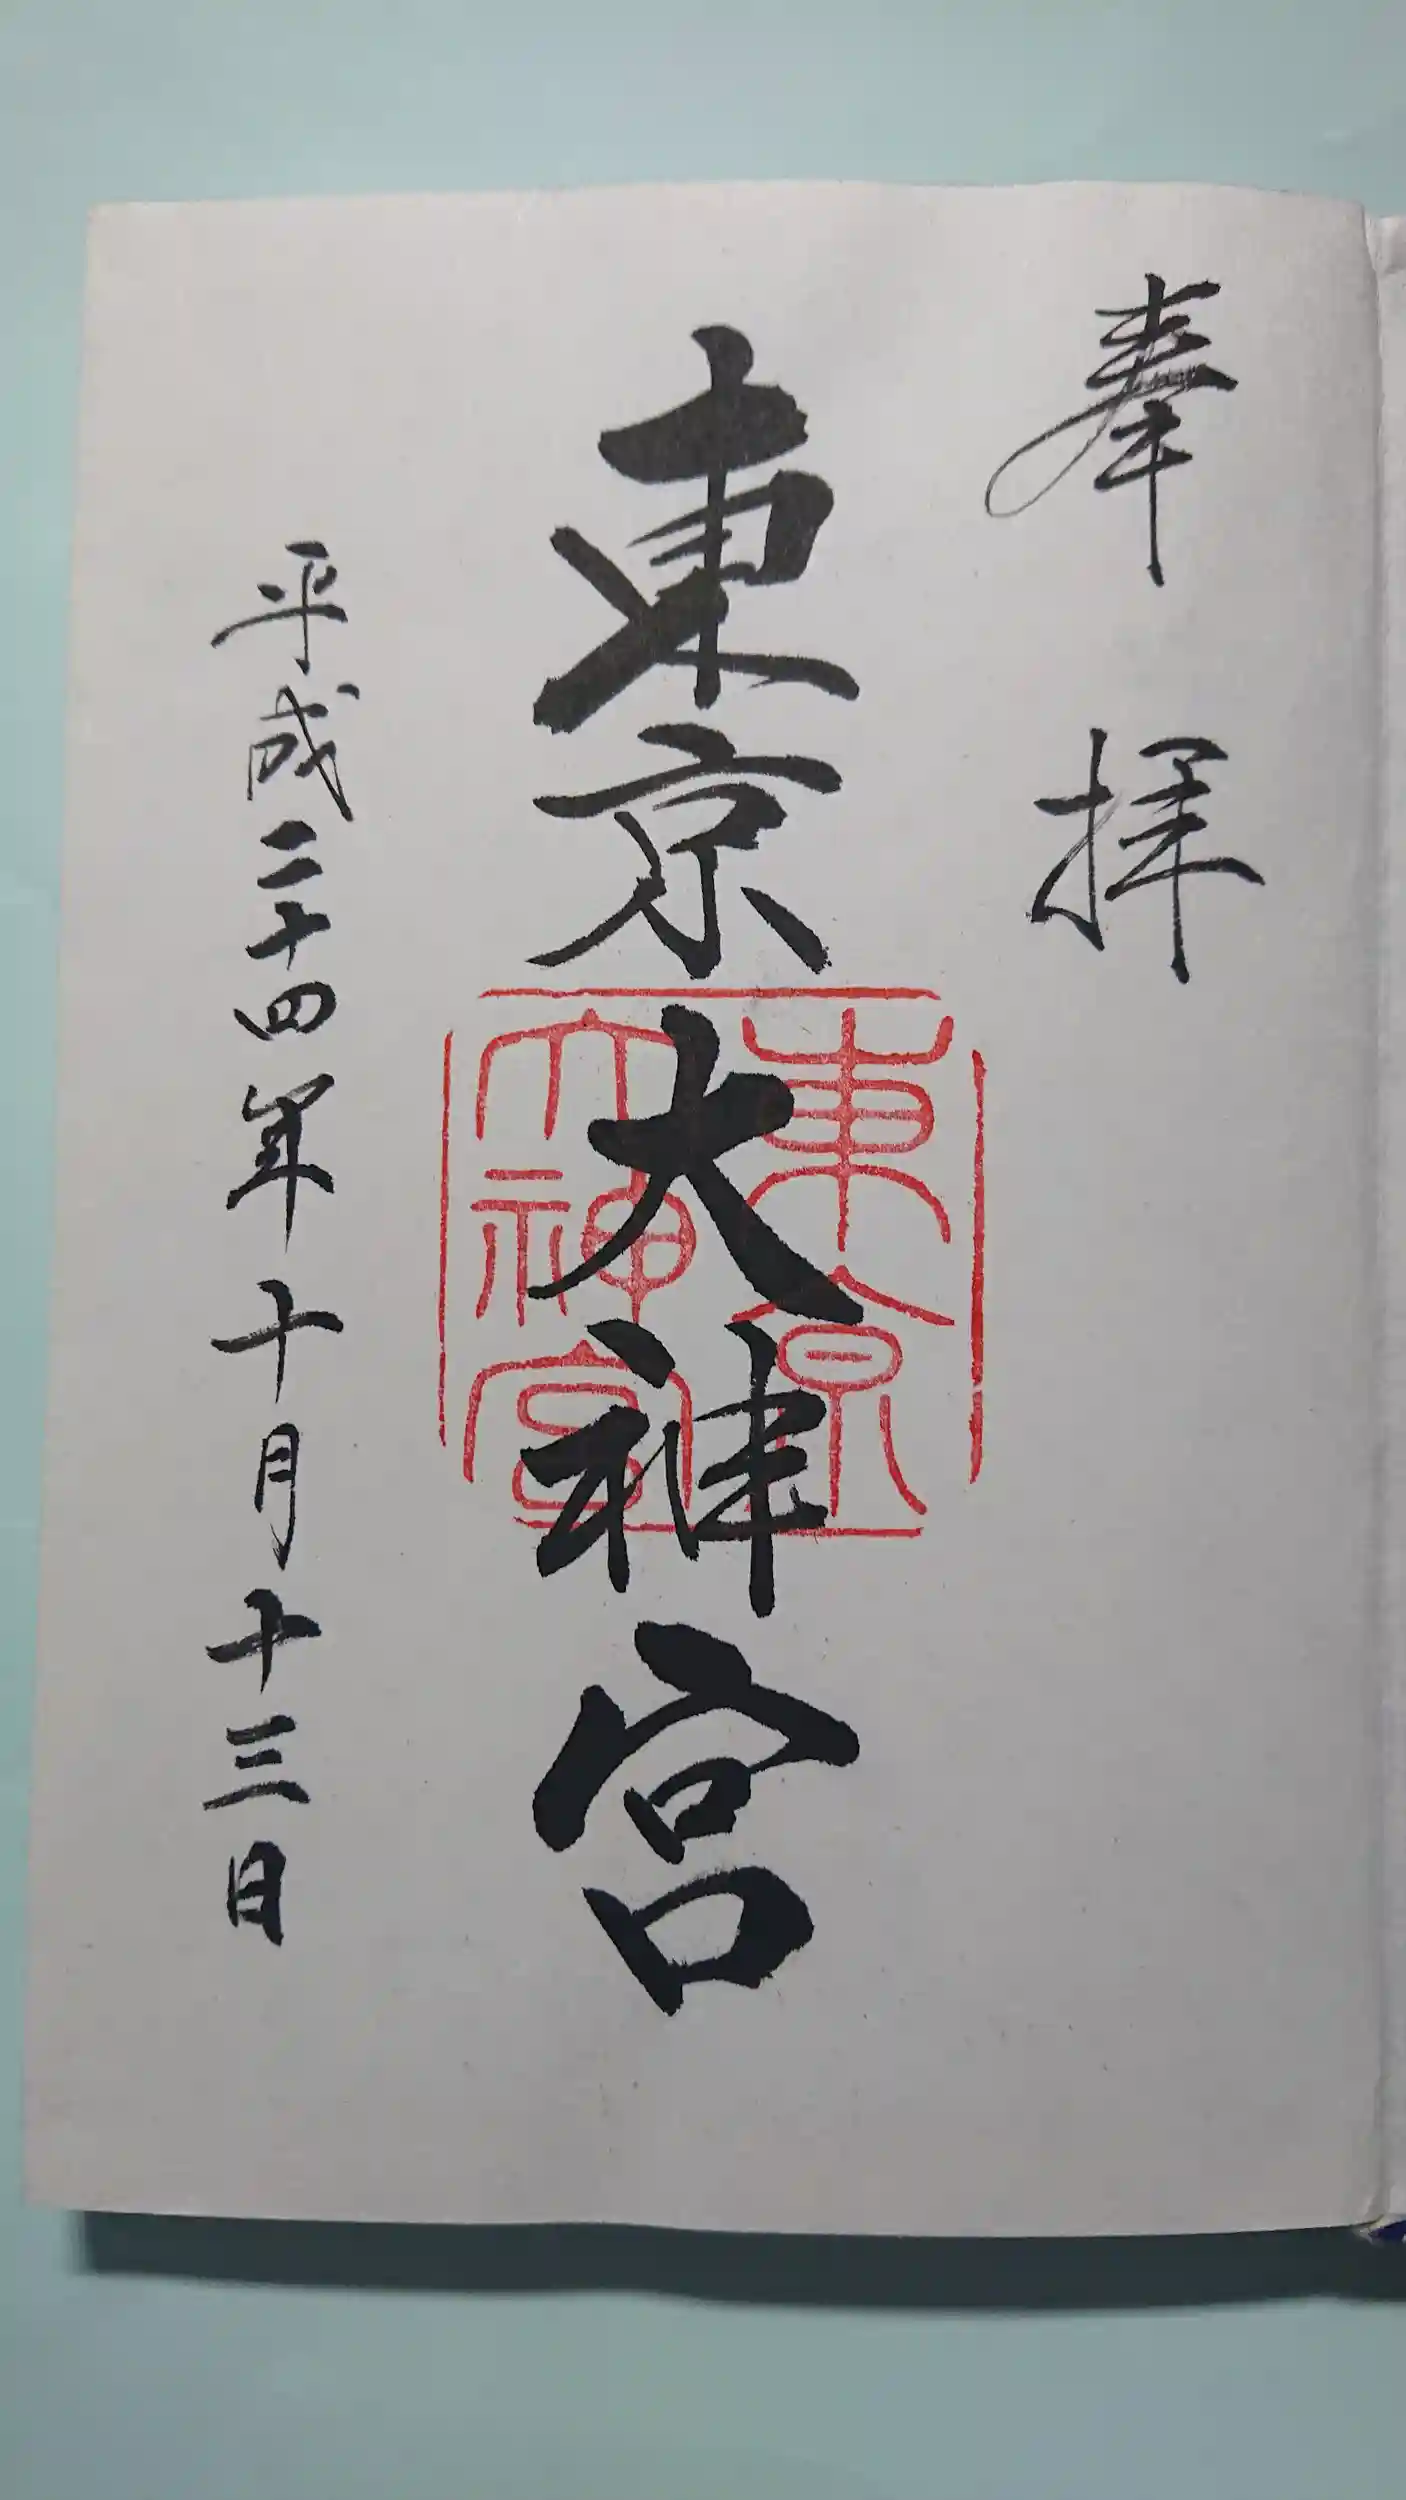 奉拝
東京大神宮
東京
大神宮
平成二十四年十月十三日